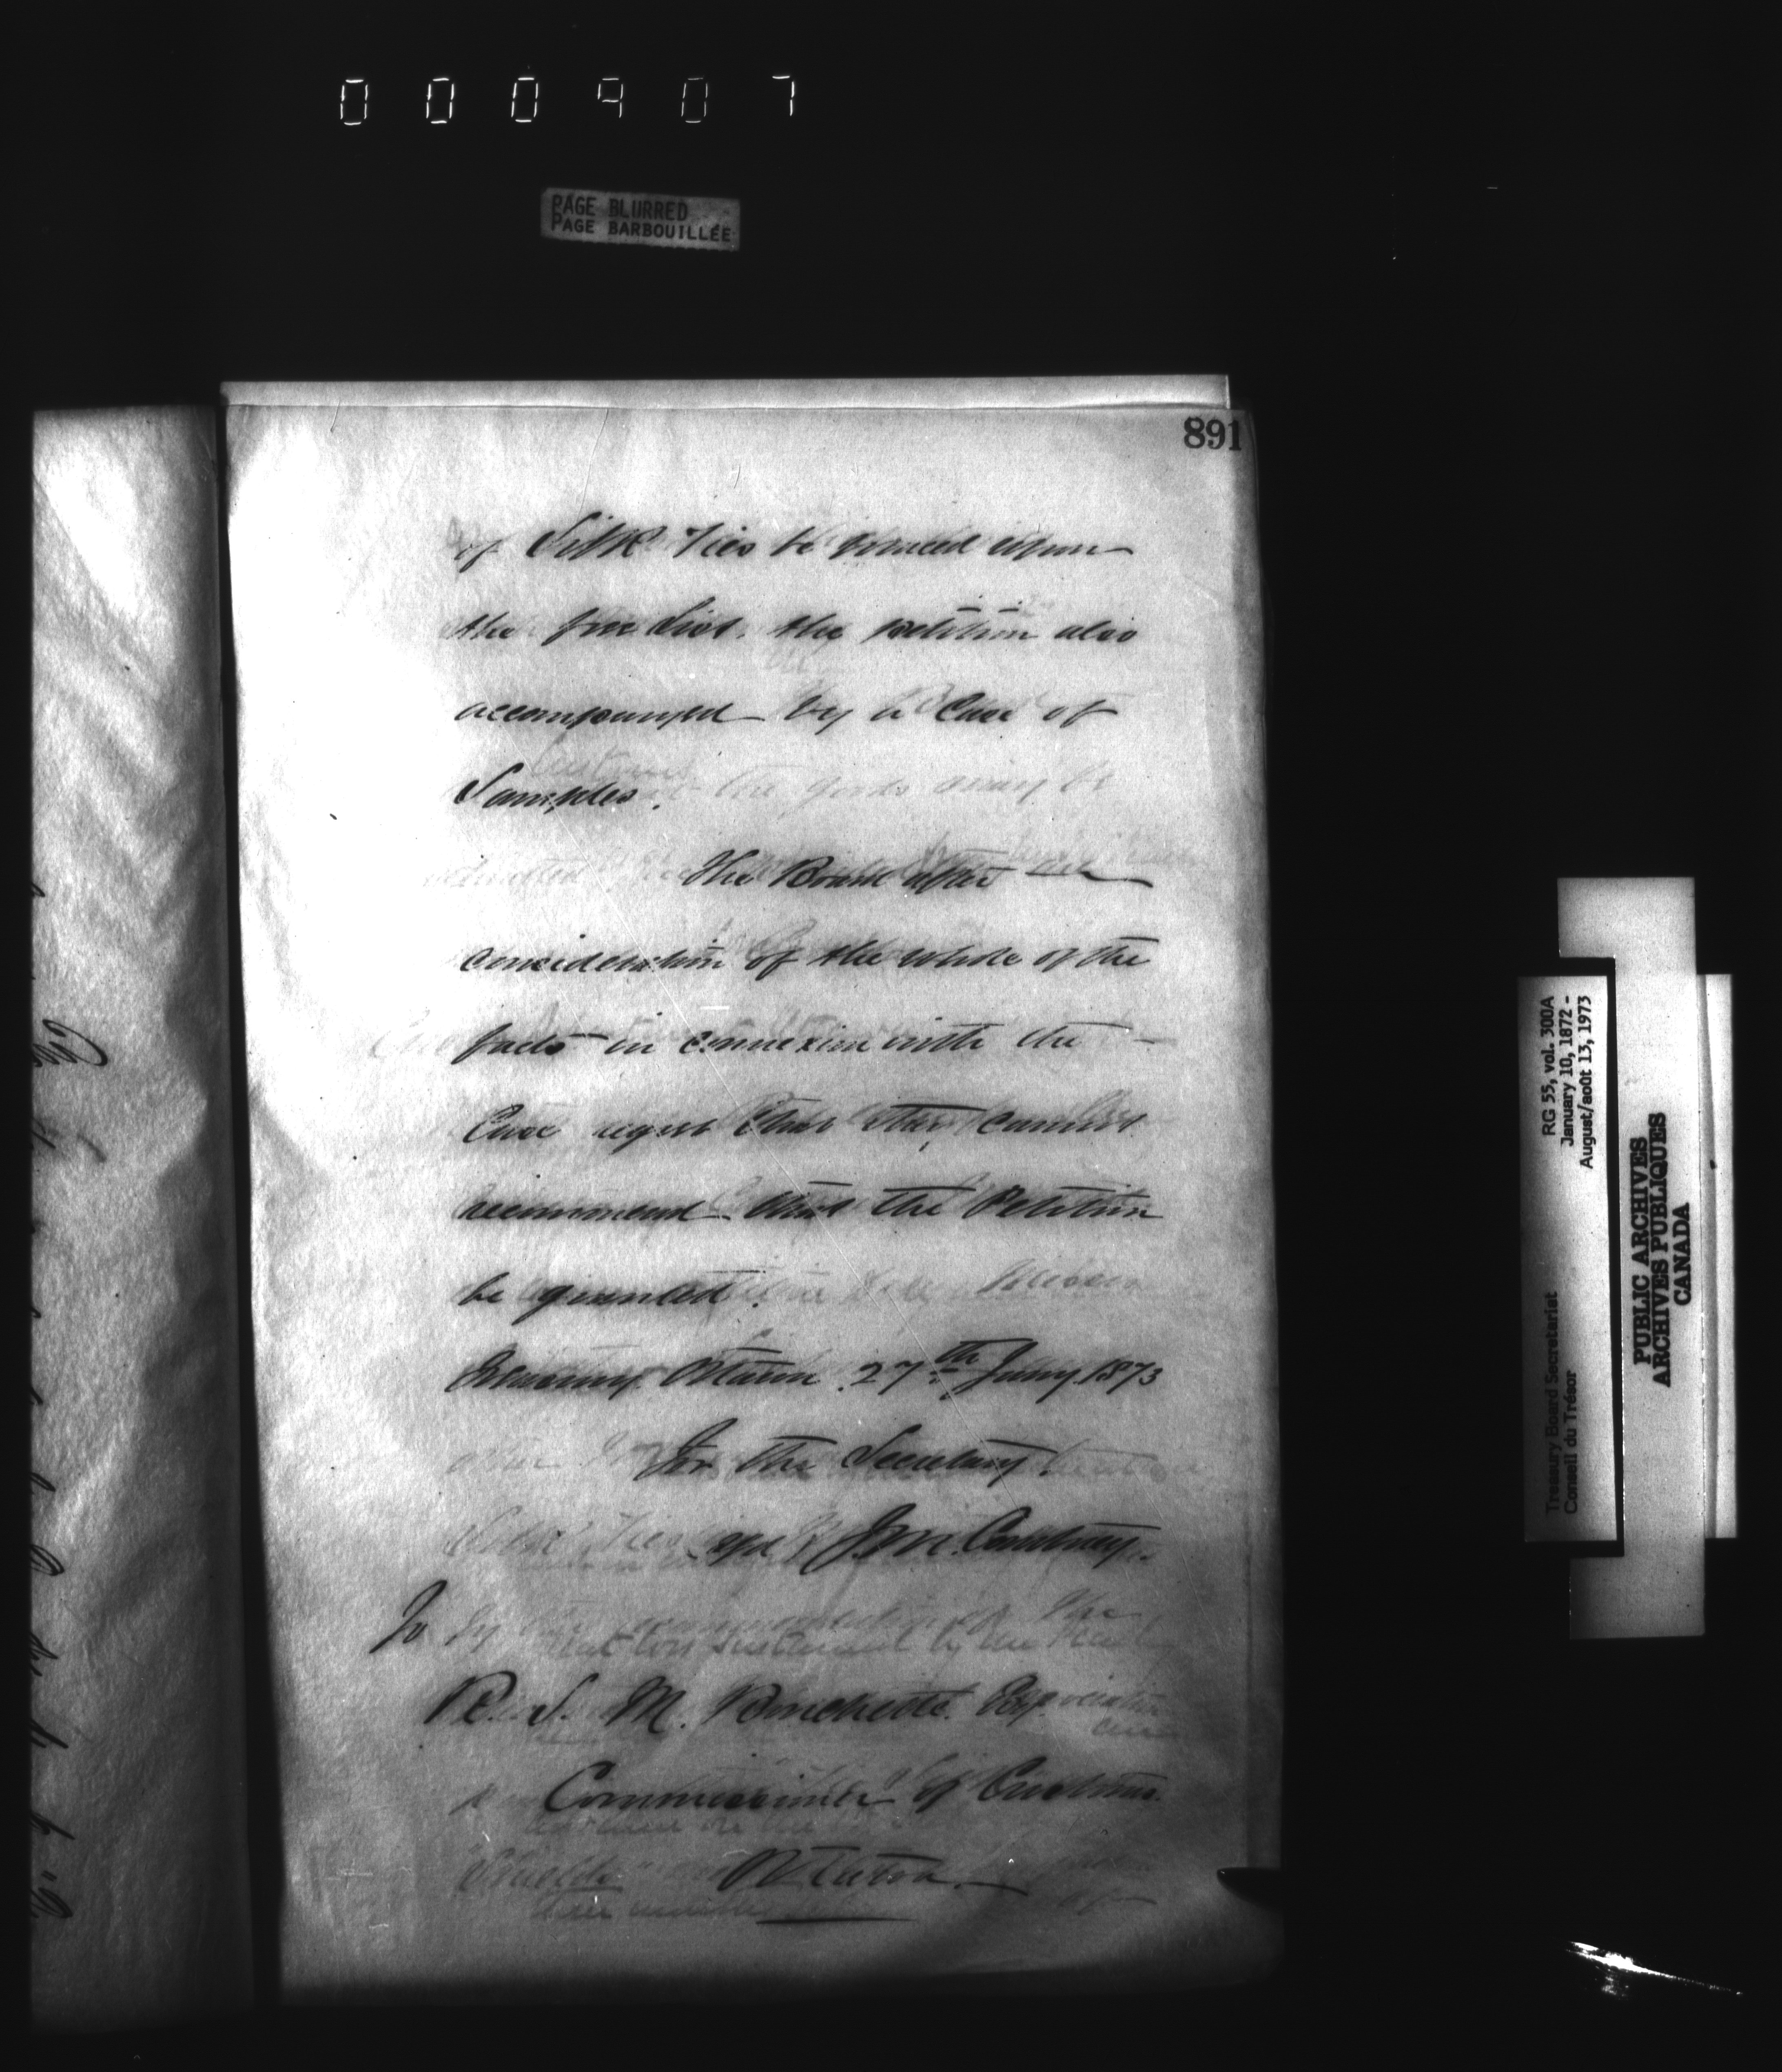 000907
PAGE BLURRED
PAGE BARBOUILLÉE
891
of Silk Ties be placed upon
the free list. the petition also
accompanyed by a Case of
Samples.
The Board after
consideration of the whole of the
facts in connexion with the
Case regret that they cannot
recommend that the Petition
be granted.
Treasury Ottawa 27th Jany 1873
For the Secretary.
J.M. Courtney.
To
R. S. M. Bouchette. Esq.
Commissioner of Customs.
Ottawa.
RG 55, vol. 300A
January 10, 1872 -
August/août 13, 1973
Treasury Board Secretariat
Conseil du Trésor
PUBLIC ARCHIVES
ARCHIVES PUBLIQUES
CANADA